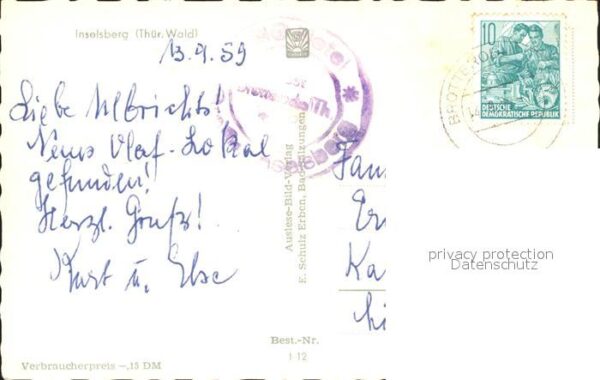 Inselsberg (Thür. Wald)
13.9.59
Liebe Ulbrichts!
Neues Lokal
gefunden!
Herzl. Gruß!
Kurt u. Else
Verbraucherpreis -,15 DM
Auslese-Bild-Verlag
E. Schulz Erben, Bad Salzungen
Best.-Nr.
I 12
10
DEUTSCHE
DEMOKRATISCHE REPUBLIK
BROTTERO
Fam
Er
Ka
privacy protection
Datenschutz